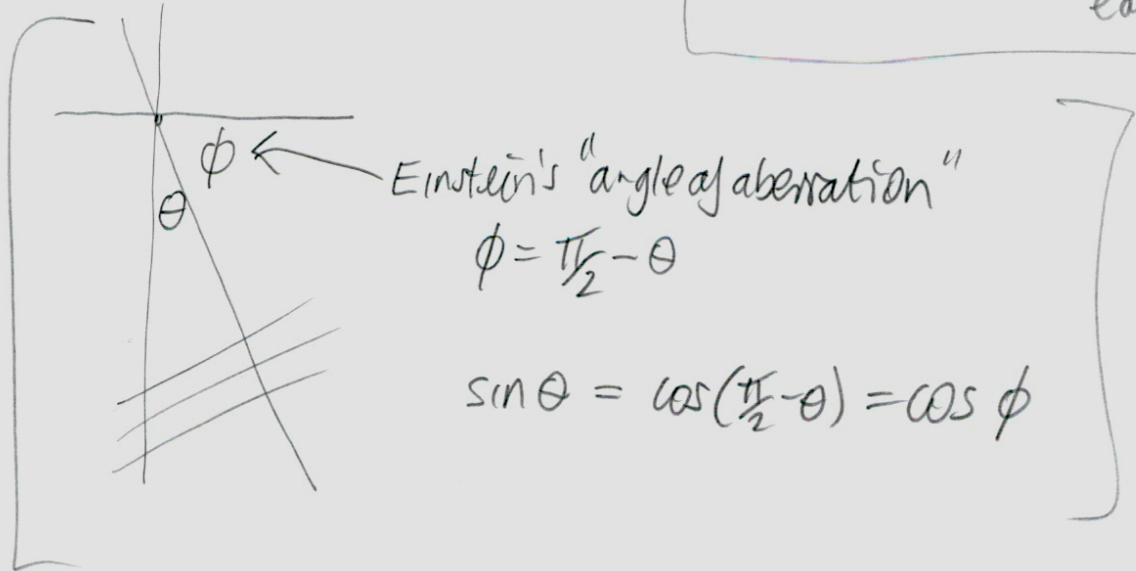 ea
φ ← Einstein's "angle of aberration"
θ
φ = π/2 - θ
sin θ = cos(π/2 - θ) = cos φ